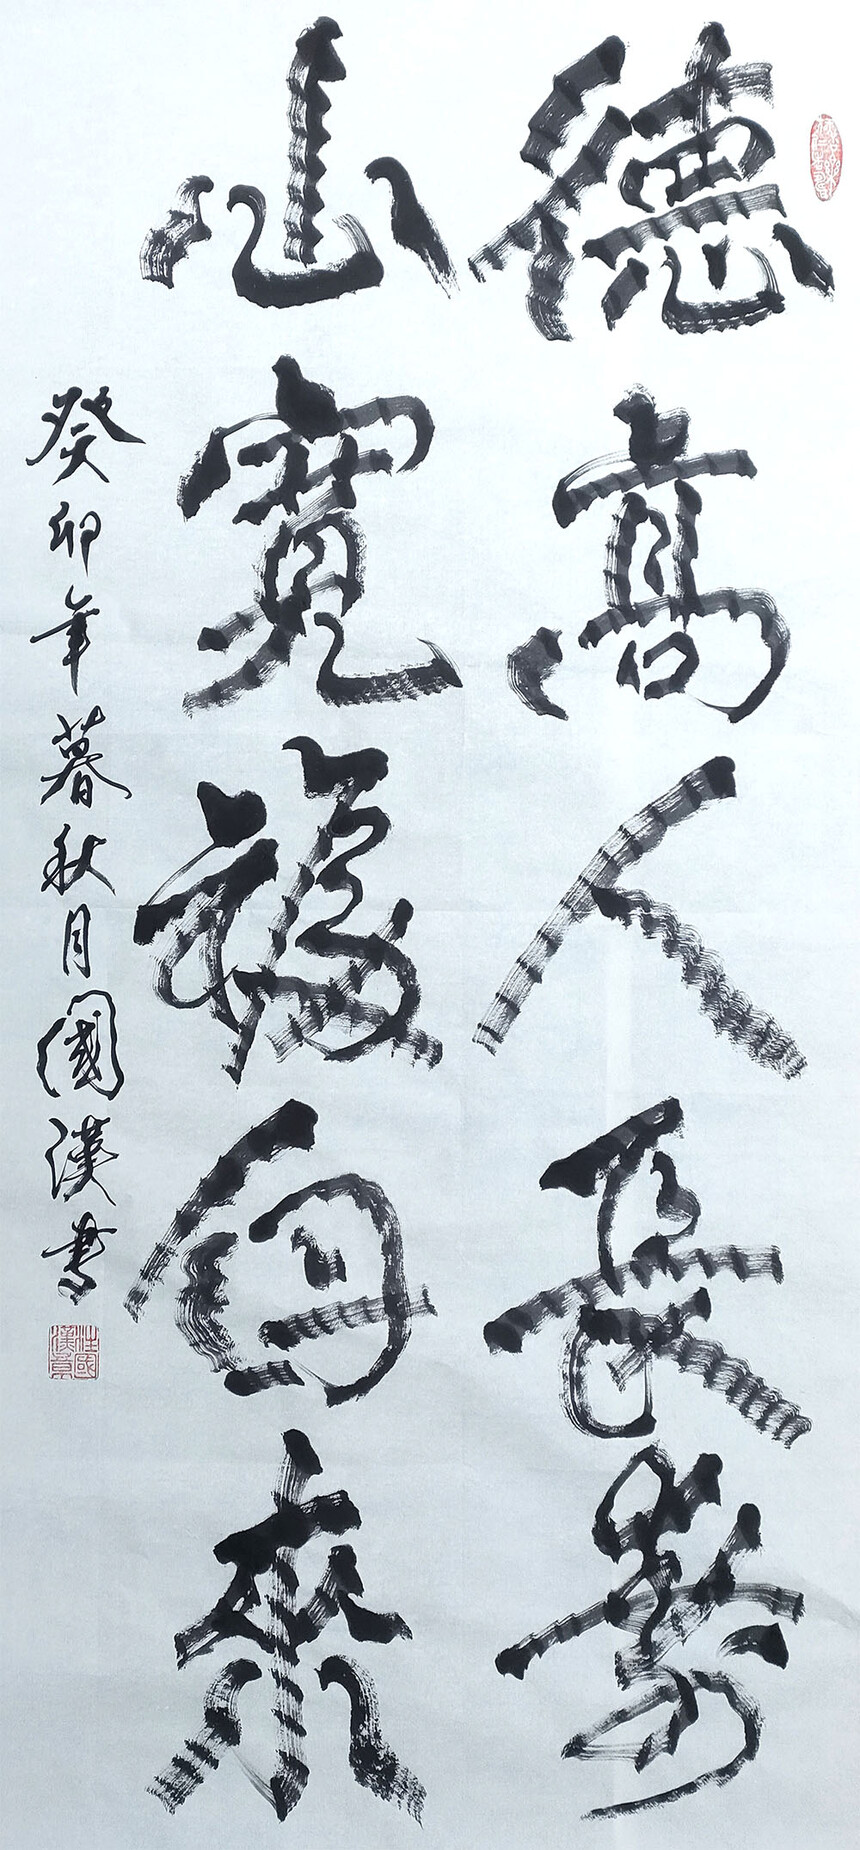 德高人長壽
心寬福自來
癸卯年暮秋月國漢書